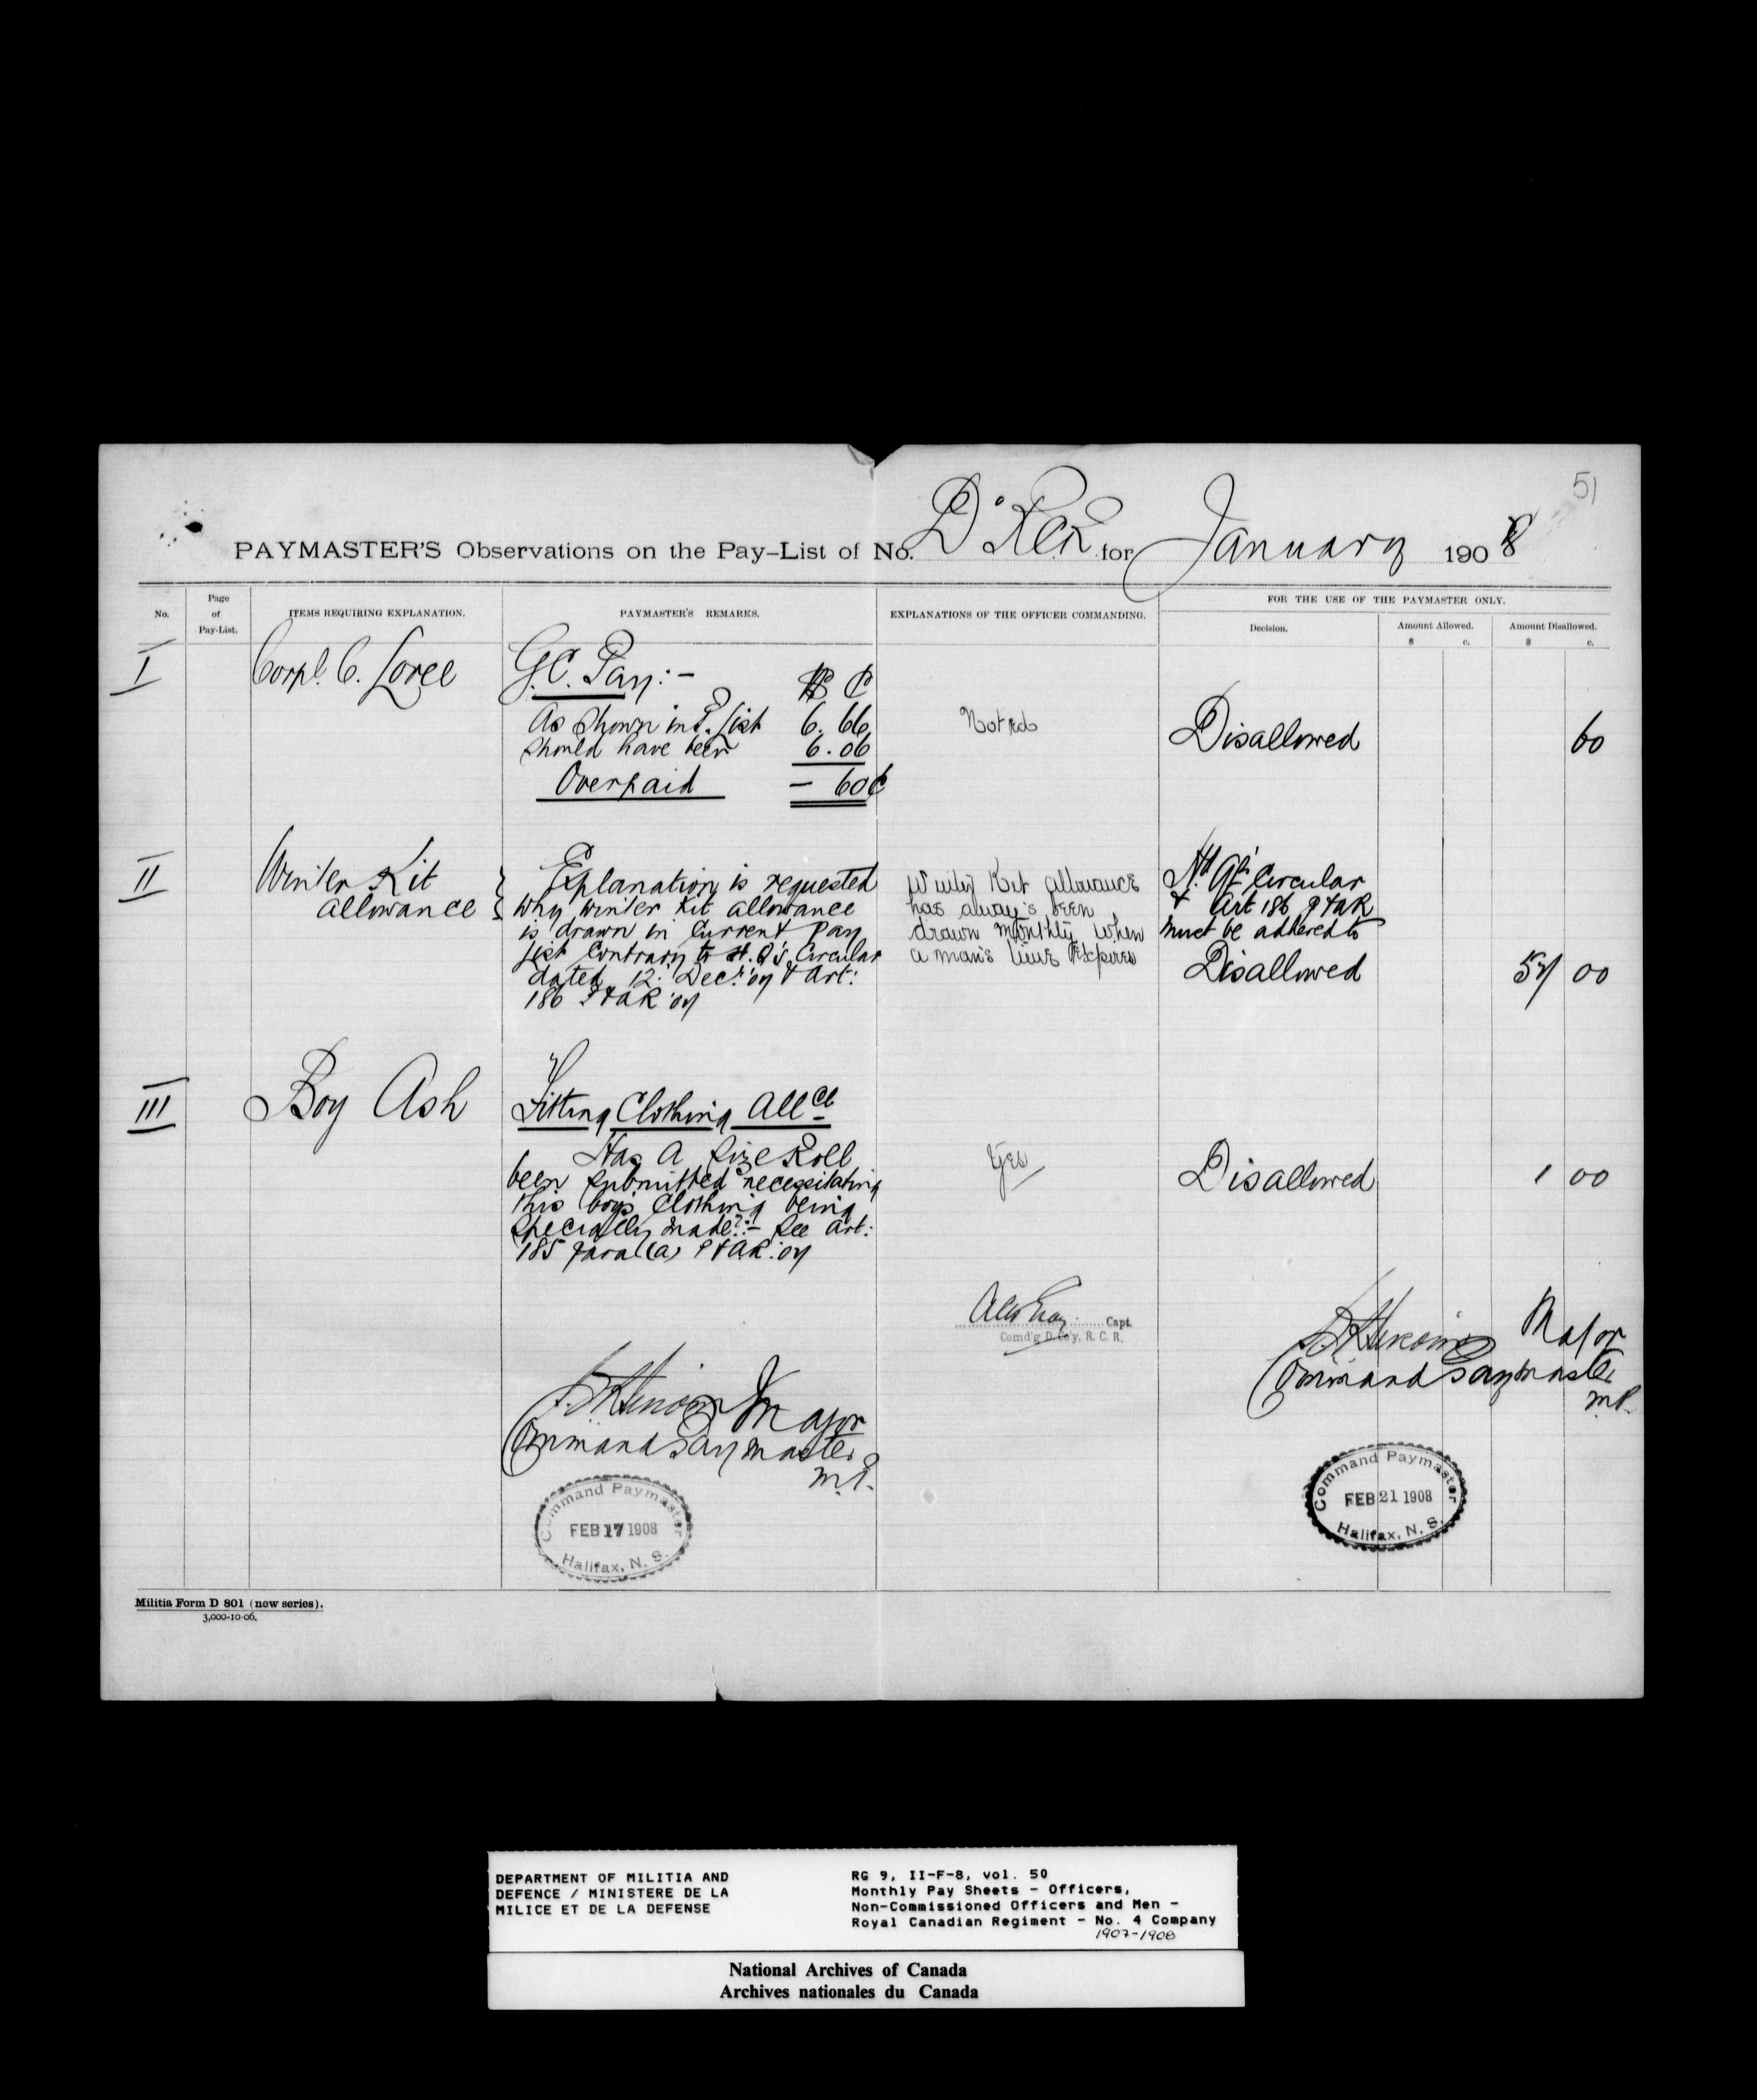 51
PAYMASTER'S Observations on the Pay-List of No. D" RCR for January 1908
No.
Page of Pay-List.
ITEMS REQUIRING EXPLANATION.
PAYMASTER'S REMARKS.
EXPLANATIONS OF THE OFFICER COMMANDING.
FOR THE USE OF THE PAYMASTER ONLY.
Decision.
Amount Allowed.
$ c.
Amount Disallowed.
$ c.
I
Corpl. C. Loree
G.C. Pay:-
$ C
As shown in P. list 6. 66
should have been 6. 06
Overpaid - 60¢
Noted
Disallowed
60
II
Winter Kit
allowance
Explanation is requested
why winter Kit allowance
is drawn in Current Pay
list contrary to H.Q's Circular
dated 12. Decr. '07 & Art:
186 P&AR '07
Winter Kit allowance
has always been
drawn monthly when
a man's time Expires
Hd Qrs' Circular
& Art 186 P&AR
must be adhered to
Disallowed
57 00
III
Boy Ash
Fitting Clothing Allce
Has a size Roll
been submitted necessitating
this boys Clothing being
specially made?- See Art:
185 para (a) P&AR. '07
Yes
Disallowed
1 00
Capt.
Comd'g D. Co'y, R. C. R.
Major
Command Paymaster
M.P.
Major
Command Paymaster
M.P.
Command Paymaster
FEB 17 1908
Halifax, N. S.
Command Paymaster
FEB 21 1908
Halifax, N. S.
Militia Form D 801 (new series).
3,000-10-06.
DEPARTMENT OF MILITIA AND
DEFENCE / MINISTERE DE LA
MILICE ET DE LA DEFENSE
RG 9, II-F-8, vol. 50
Monthly Pay Sheets - Officers,
Non-Commissioned Officers and Men -
Royal Canadian Regiment - No. 4 Company
1907-1908
National Archives of Canada
Archives nationales du Canada